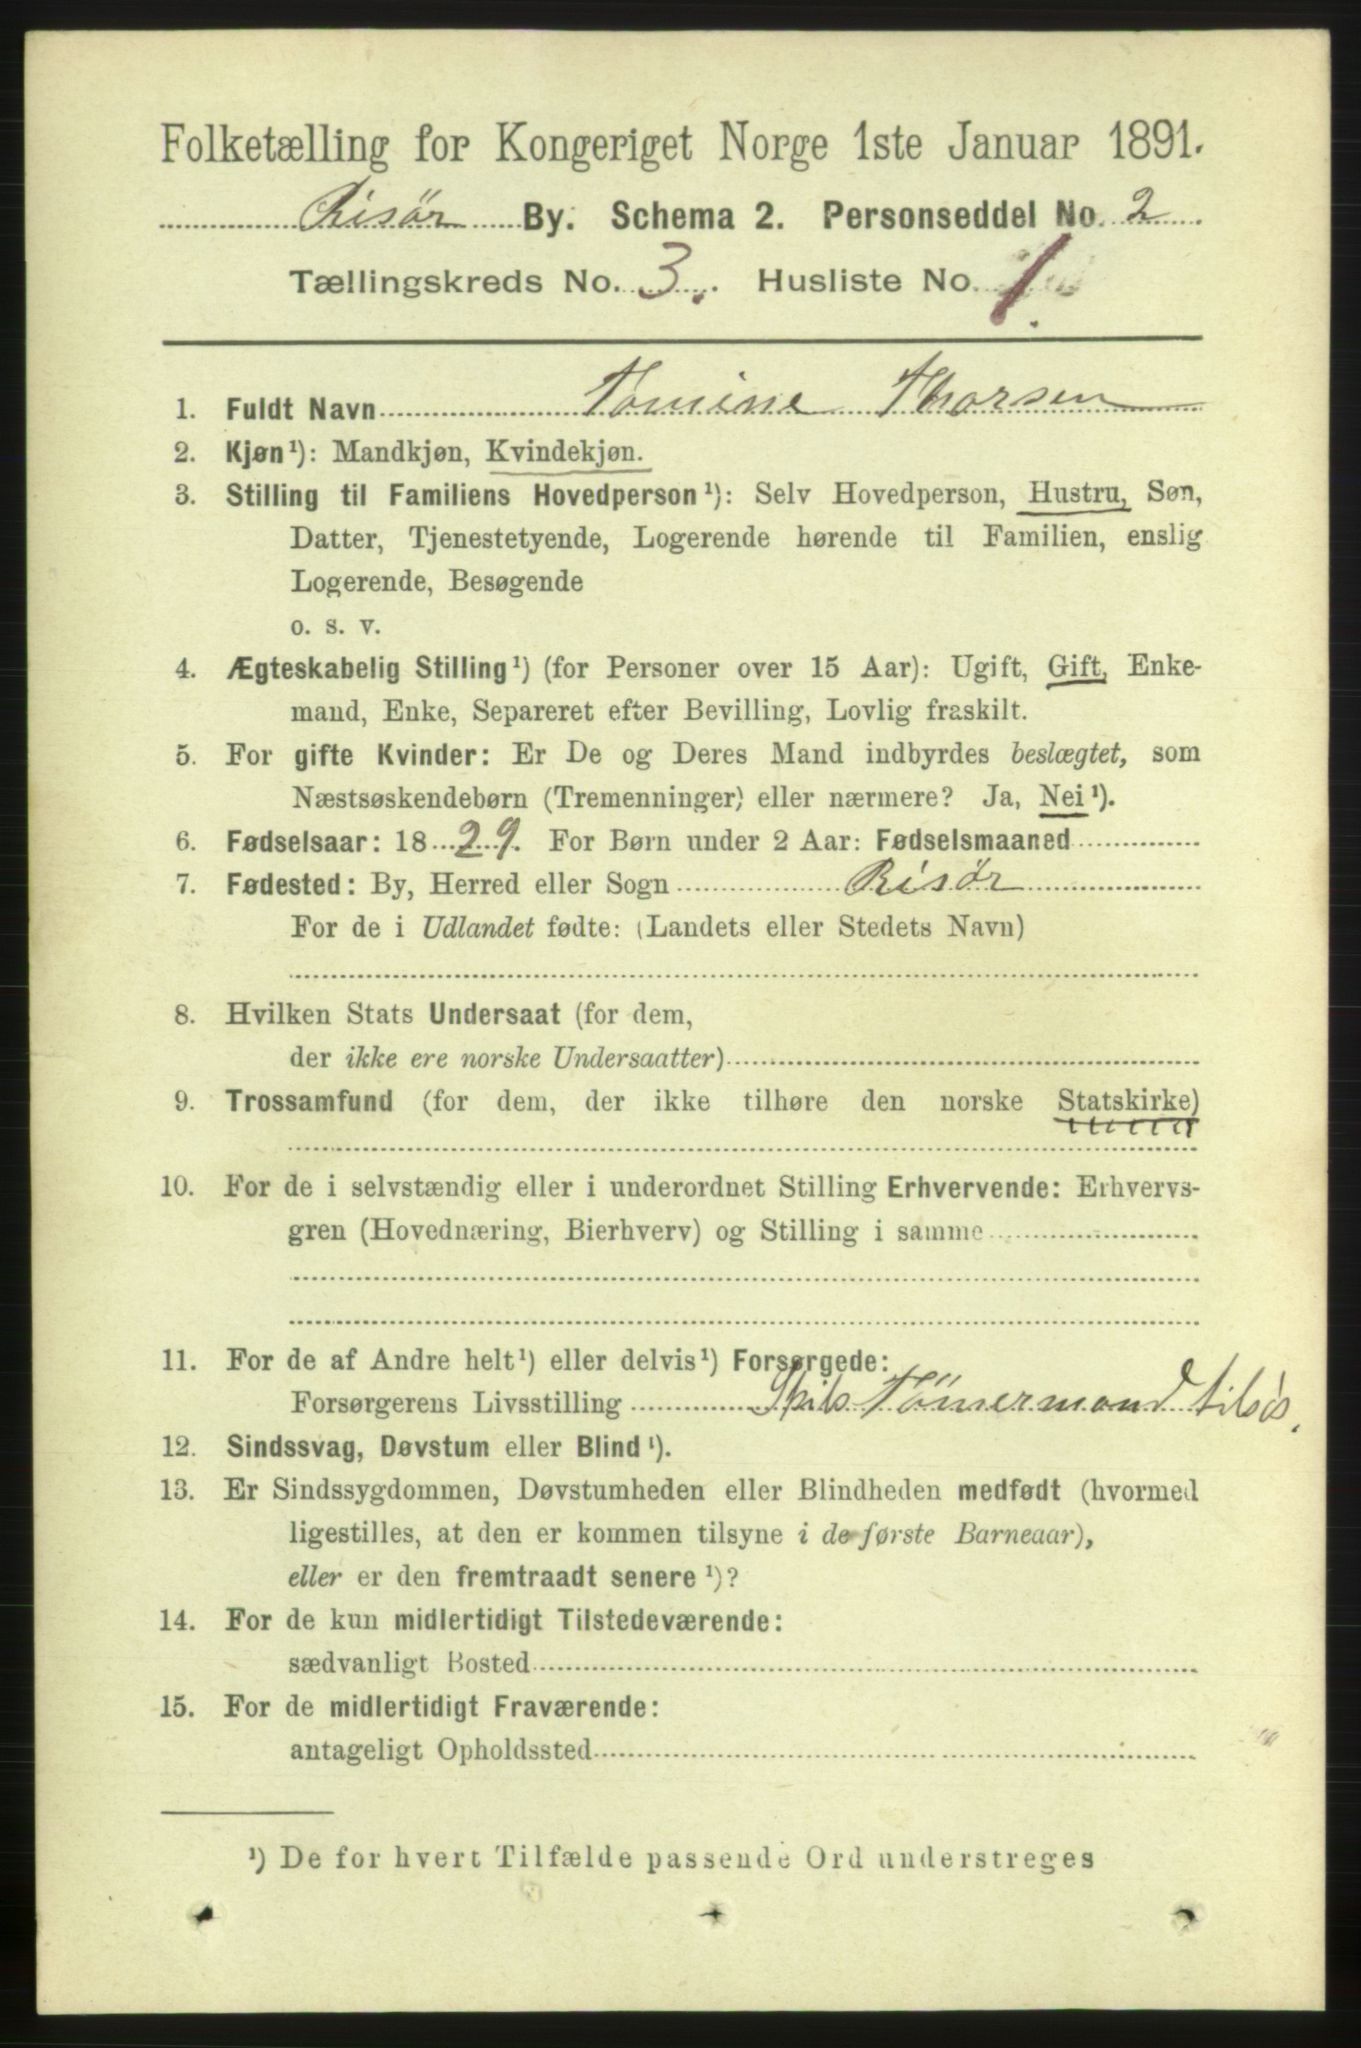 Folketælling for Kongeriget Norge 1ste Januar 1891.
Risør By. Schema 2. Personseddel No. 2
Tællingskreds No. 3. Husliste No. 1.
1. Fuldt Navn Tomine Thorsen
2. Kjøn¹): Mandkjøn, Kvindekjøn.
3. Stilling til Familiens Hovedperson¹): Selv Hovedperson, Hustru, Søn,
Datter, Tjenestetyende, Logerende hørende til Familien, enslig
Logerende, Besøgende
o. s. v.
4. Ægteskabelig Stilling¹) (for Personer over 15 Aar): Ugift, Gift, Enke-
mand, Enke, Separeret efter Bevilling, Lovlig fraskilt.
5. For gifte Kvinder: Er De og Deres Mand indbyrdes beslægtet, som
Næstsøskendebørn (Tremenninger) eller nærmere? Ja, Nei¹).
6. Fødselsaar: 1829. For Børn under 2 Aar: Fødselsmaaned
7. Fødested: By, Herred eller Sogn Risør
For de i Udlandet fødte: (Landets eller Stedets Navn)
8. Hvilken Stats Undersaat (for dem,
der ikke ere norske Undersaatter)
9. Trossamfund (for dem, der ikke tilhøre den norske Statskirke)
10. For de i selvstændig eller i underordnet Stilling Erhvervende: Erhvervs-
gren (Hovednæring, Bierhverv) og Stilling i samme
11. For de af Andre helt¹) eller delvis¹) Forsørgede:
Forsørgerens Livsstilling Skibs Tömermand tilsös.
12. Sindssvag, Døvstum eller Blind¹).
13. Er Sindssygdommen, Døvstumheden eller Blindheden medfødt (hvormed
ligestilles, at den er kommen tilsyne i de første Barneaar),
eller er den fremtraadt senere¹)?
14. For de kun midlertidigt Tilstedeværende:
sædvanligt Bosted
15. For de midlertidigt Fraværende:
antageligt Opholdssted
¹) De for hvert Tilfælde passende Ord understreges